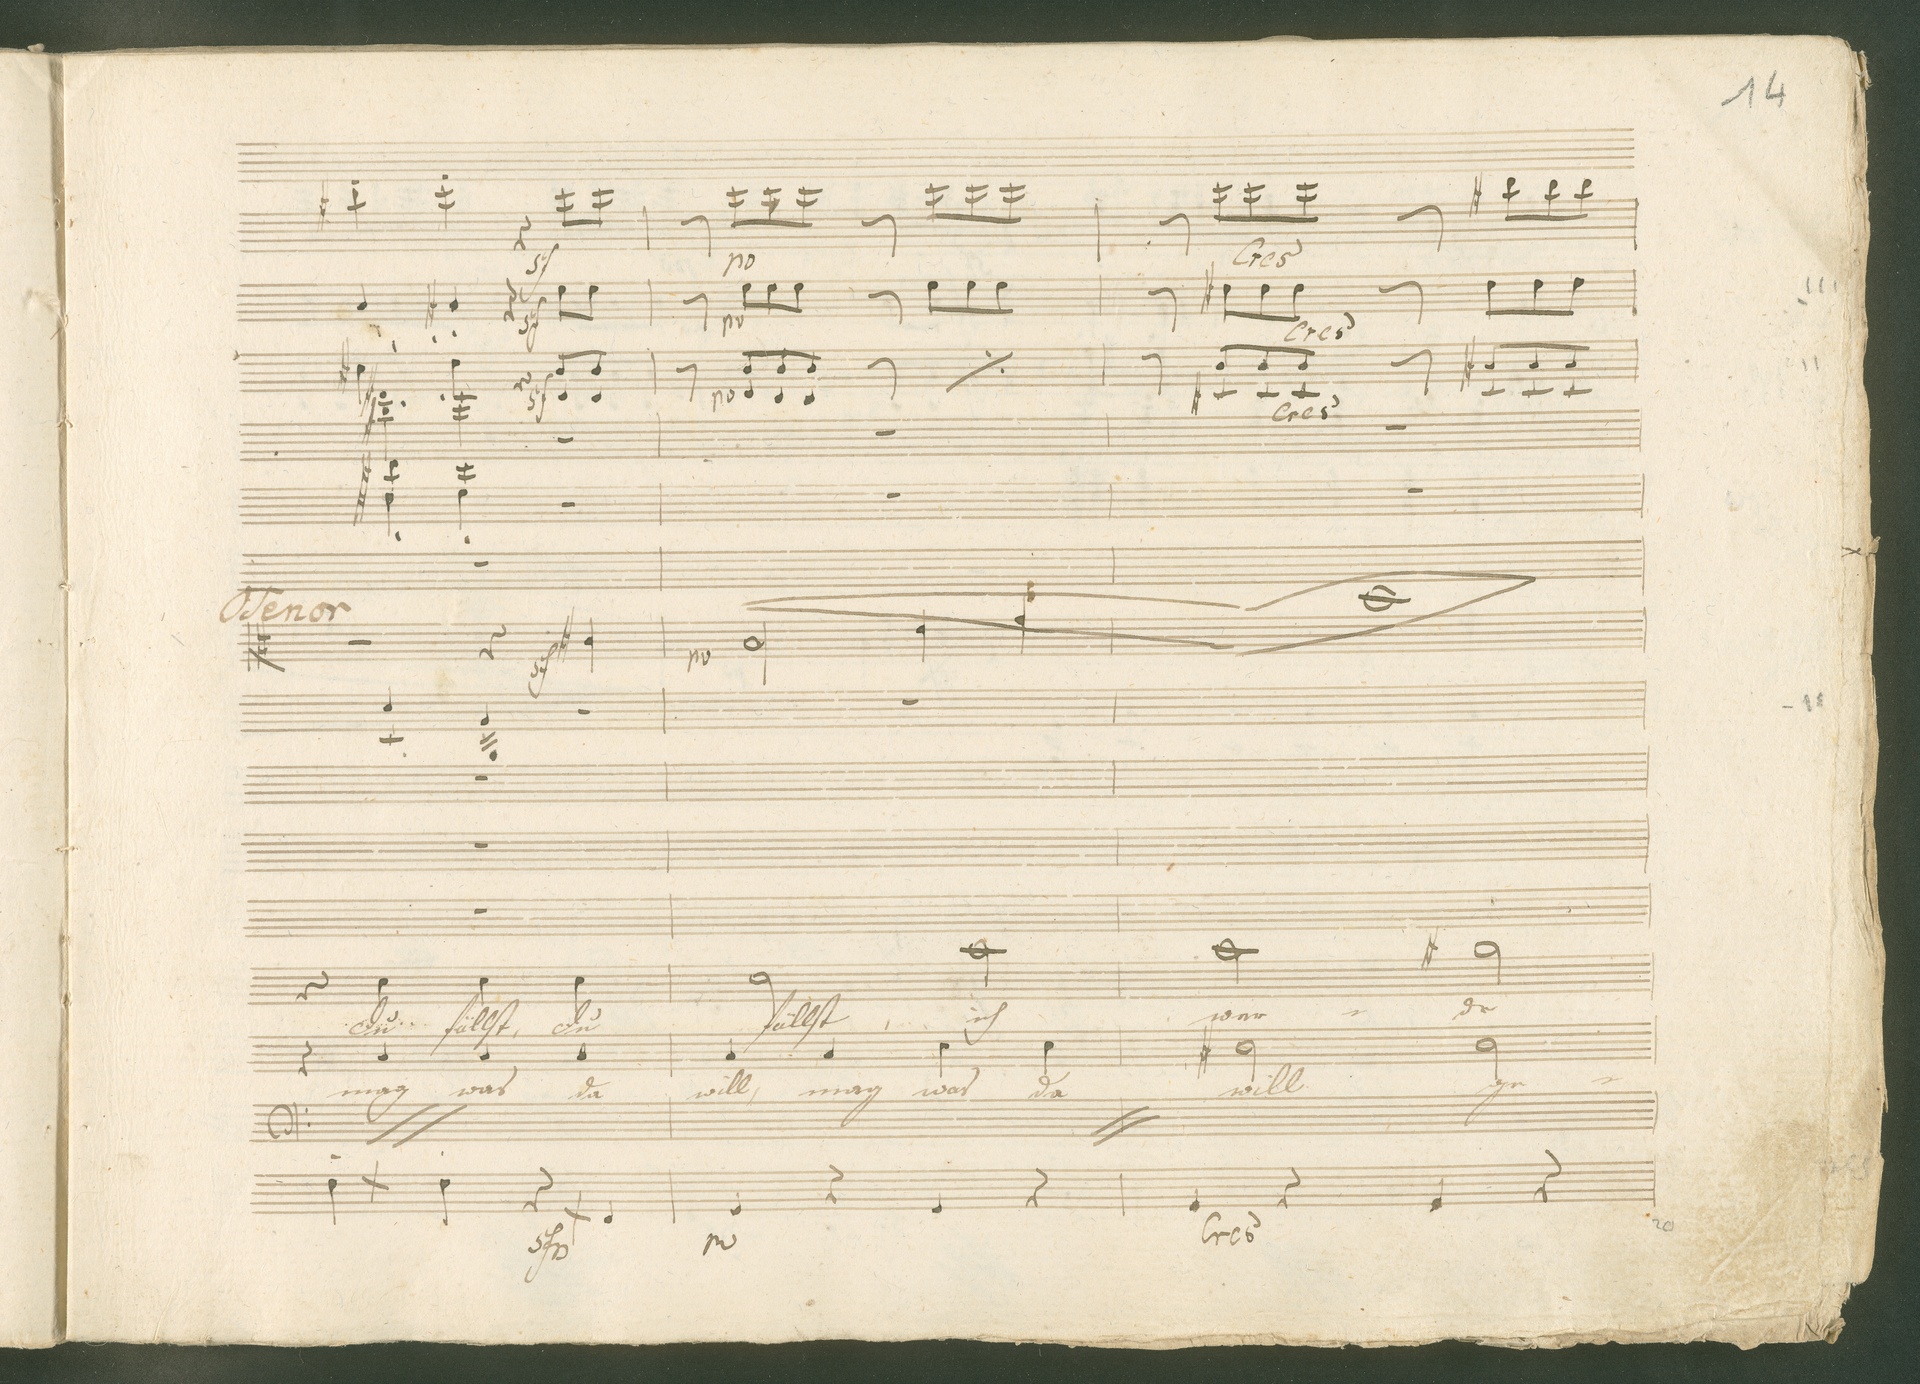 14
sf po Cres
sf po Cres
sf po Cres
Tenor
sf po
du fällst, du fällst, ich wer - de
mag was da will, mag was da will ge -
sfp po Cres
20